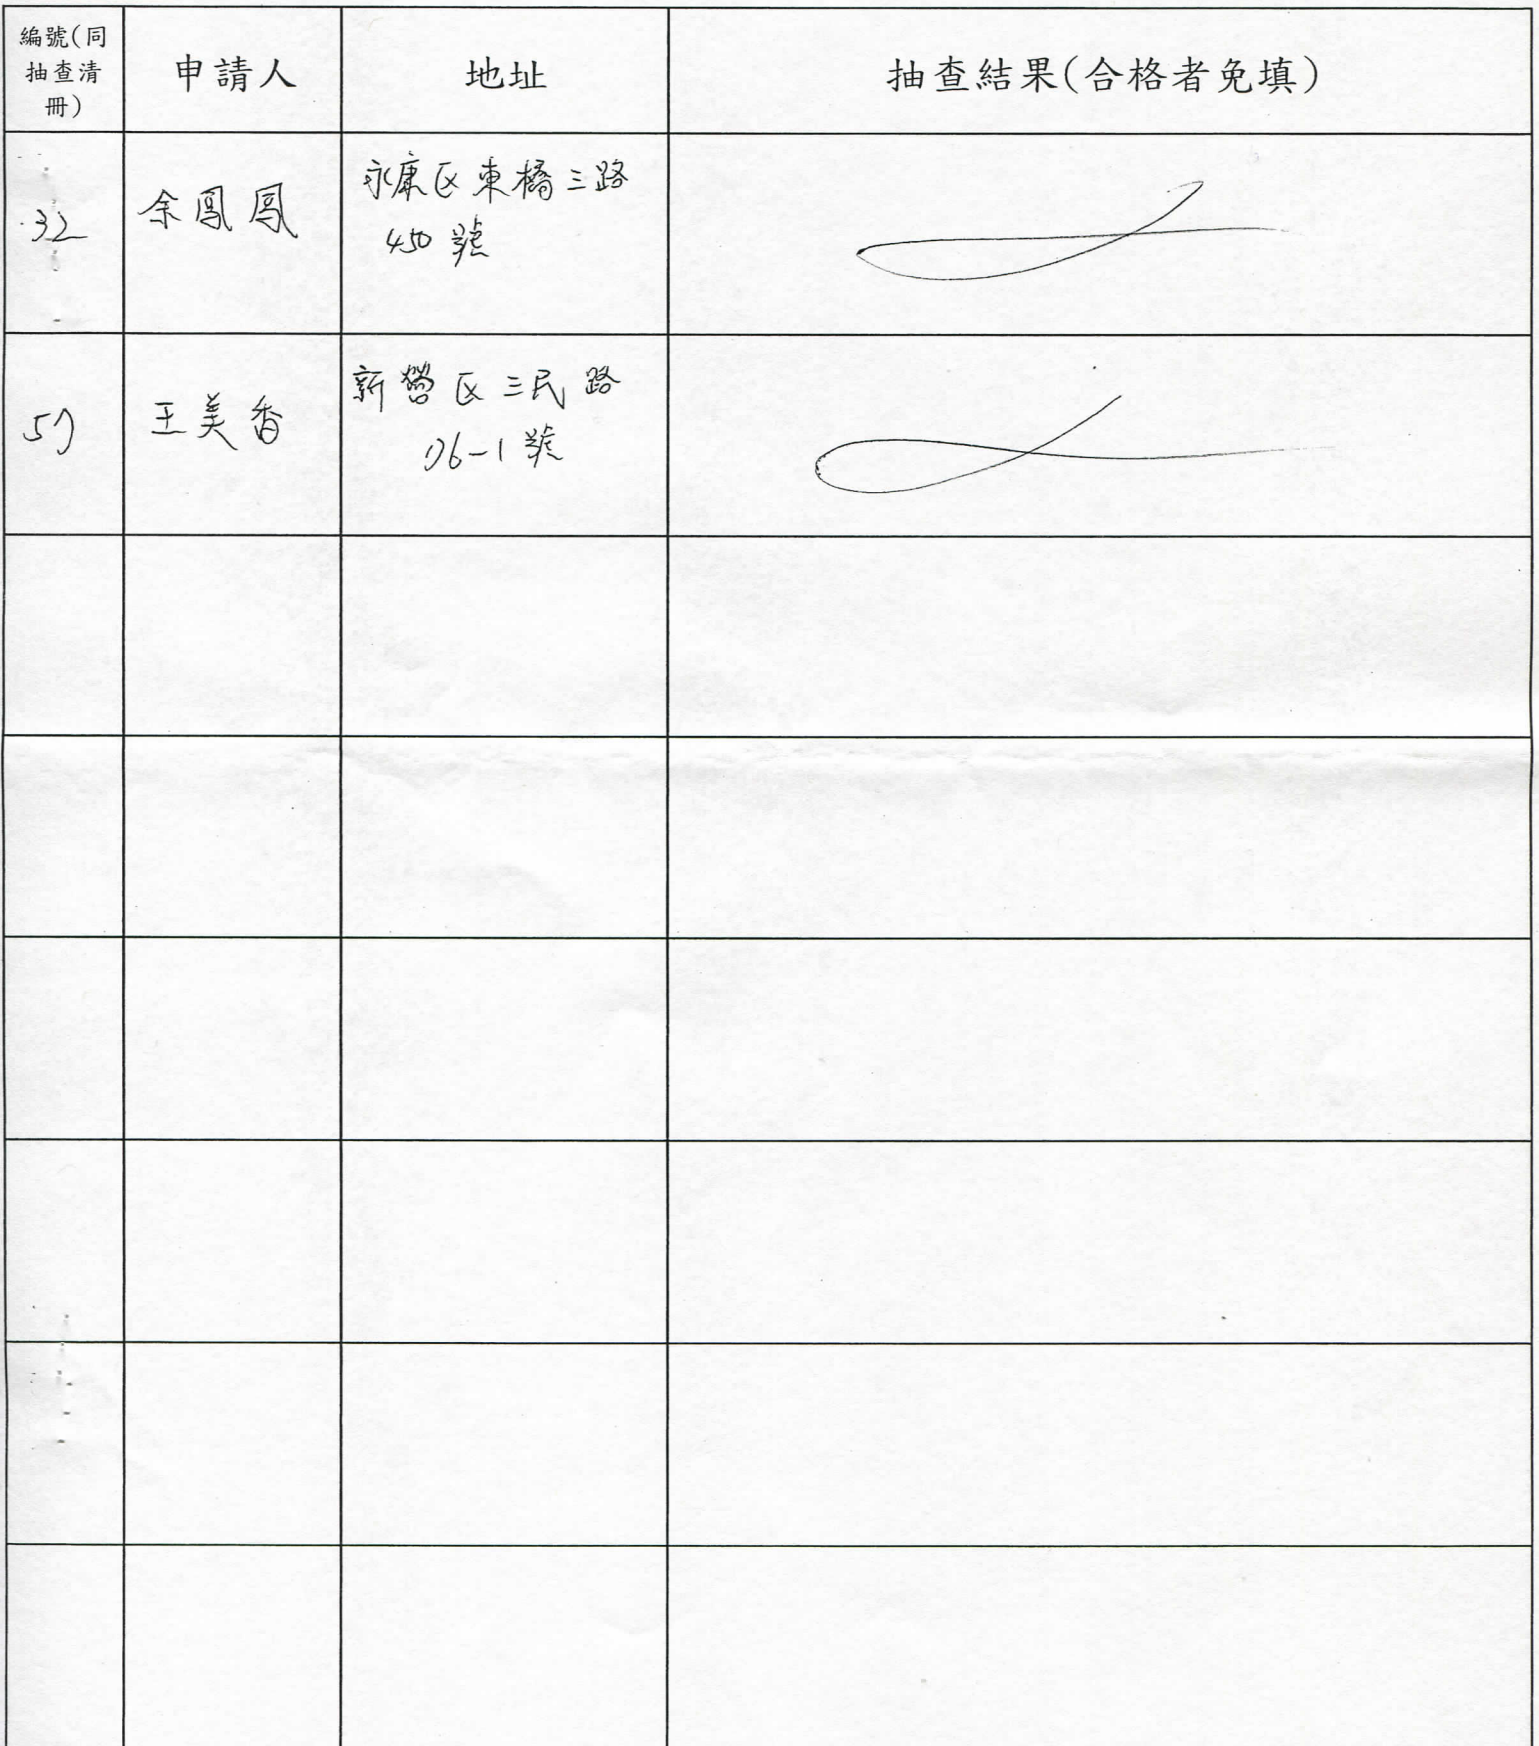 編號(同
抽查清
冊)
申請人
地址
抽查結果(合格者免填)
32
余鳳鳳
永康区東橋三路
450號
57
王美香
新營区三民路
76-1號